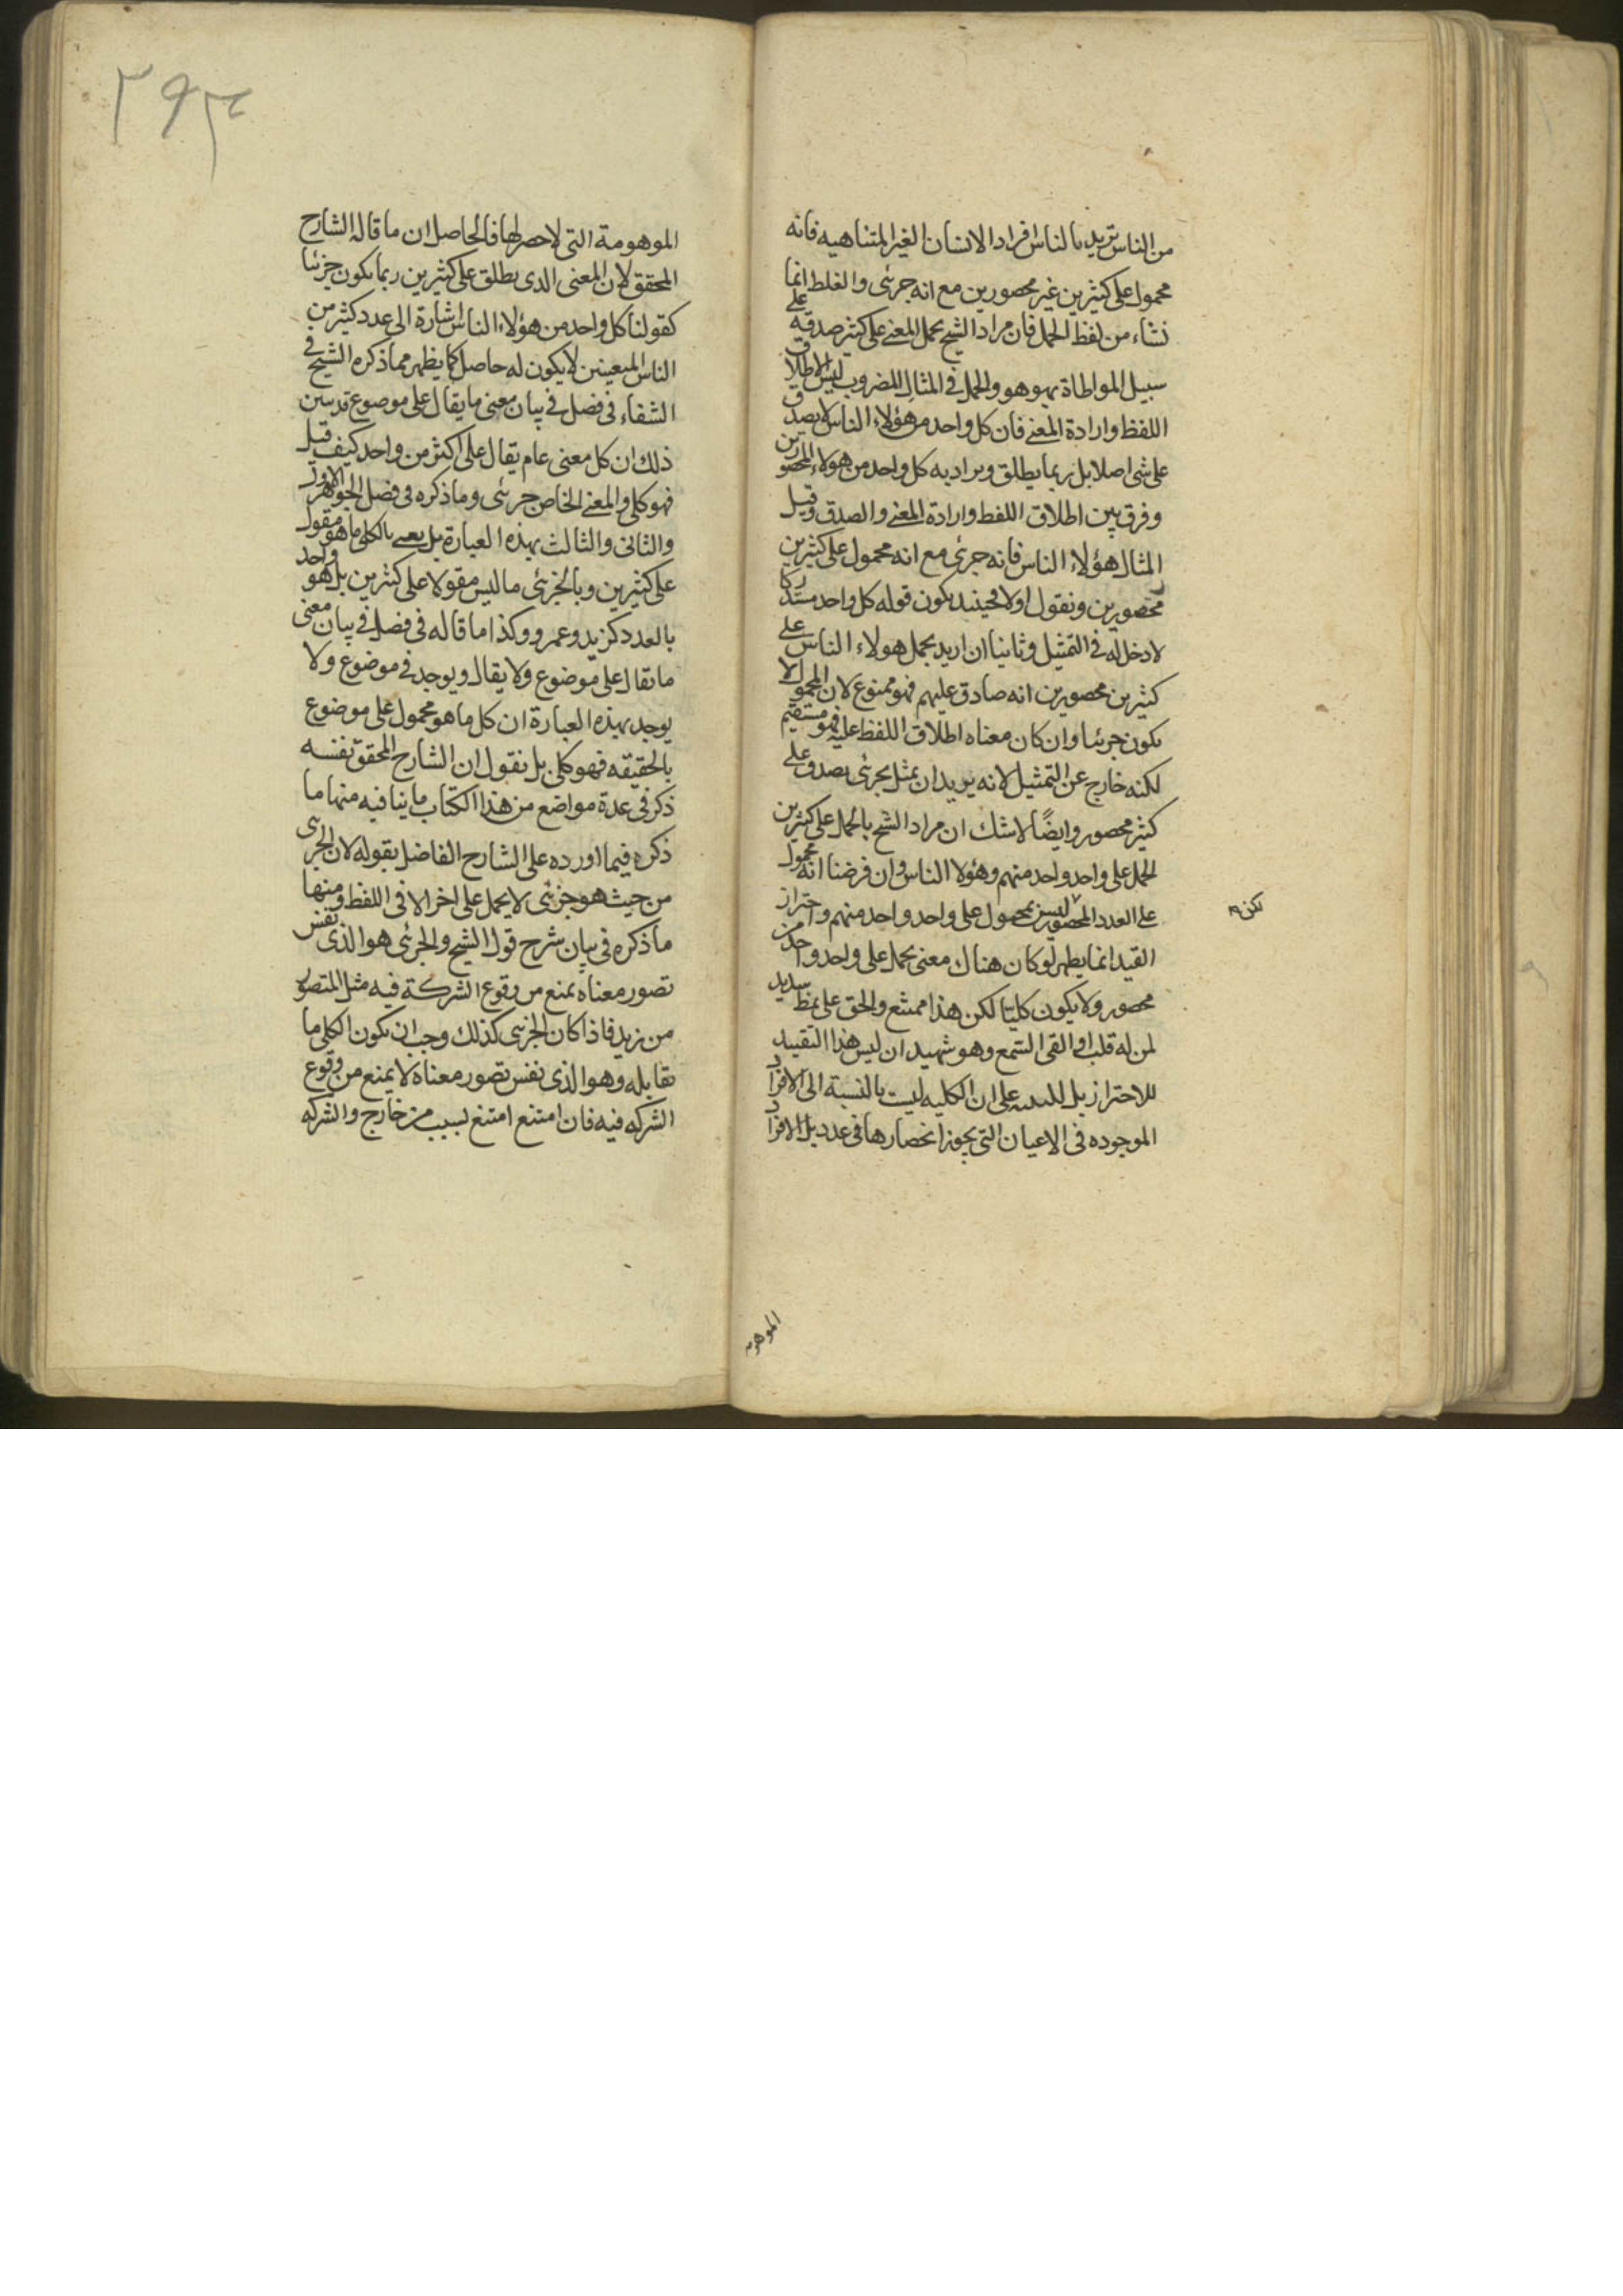 من الناس تريد بالناس افراد الانسان الغير المتناهيه فانه
محمول على كثيرين غير محصورين مع انه جزئى والغلط انما
نشاء من لفظ الحمل فان مراد الشيخ بحمل المعنى على كثير صدقه على
سبيل المواطاة بهو هو والحمل فى المثال المضروب ليس الا اطلاق
اللفظ وارادة المعنى فان كل واحد من هؤلاء الناس لا يصدق
على شى اصلا بل ربما يطلق ويراد به كل واحد من هولاء المحصورين
وفرق بين اطلاق اللفظ وارادة المعنى والصدق وقيل
المثال هؤلاء الناس فانه جزئى مع انه محمول على كثيرين
محصورين ونقول اولا فحينئذ يكون قوله كل واحد مستدركا
لا دخل له فى التمثيل وثانيا ان اريد بحمل هولاء الناس على
كثيرين محصورين انه صادق عليهم فهو ممنوع لان المحمول لا
يكون جزئيا وان كان معناه اطلاق اللفظ عليه فهو مستقيم
لكنه خارج عن التمثيل لانه يريد ان يمثل بجزئى يصدق على
كثير محصور وايضًا لا شك ان مراد الشيخ بالحمل على كثيرين
الحمل على واحد واحد منهم وهؤلا الناس وان فرضنا انه محمول
على العدد المحصور ليس بمحمول على واحد واحد منهم واحتراز
لكن
القيد انما يظهر لو كان هناك معنى يحمل على واحد واحد من
محصور ولا يكون كليًا لكن هذا ممتنع والحق على نمط سديد
لمن له قلب او القى السمع وهو شهيد ان ليس هذا التقييد
للاحتراز بل للتنبيه على ان الكليه ليست بالنسبة الى الافراد
الموجوده فى الاعيان التى يجوز انحصارها فى عدد بل الافراد
الموهومه
٣٩٣
الموهومة التى لا حصر لها فالحاصل ان ما قاله الشارح
المحقق لان المعنى الدى يطلق على كثيرين ربما يكون جزئيا
كقولنا كل واحد من هؤلاء الناس اشارة الى عدد كثير من
الناس المعينين لا يكون له حاصل كما يظهر مما ذكره الشيخ فى
الشفاء فى فصل فى بيان معنى ما يقال على موضوع تدبين
ذلك ان كل معنى عام يقال على اكثر من واحد كيف قيل
فهو كلى والمعنى الخاص جزئى وما ذكره فى فصل الجوهر الاول
والثانى والثالث بهذه العبارة بل يعنى بالكلى ما هو مقول
على كثيرين وبالجزئى ما ليس مقولا على كثيرين بل هو واحد
بالعدد كزيد وعمرو وكذا ما قاله فى فصل فى بيان معنى
ما يقال على موضوع ولا يقال ويوجد فى موضوع ولا
يوجد بهذه العبارة ان كل ما هو محمول على موضوع
بالحقيقه فهو كلى بل نقول ان الشارح المحقق نفسه
ذكر فى عدة مواضع من هذا الكتاب ما ينافيه منها ما
ذكره فيما اورده على الشارح الفاضل بقوله لان الجزى
من حيث هو جزئى لا يحمل على اخر الا فى اللفظ ومنها
ما ذكره فى بيان شرح قول الشيخ والجزئى هو الذى نفس
تصور معناه يمنع من وقوع الشركة فيه مثل المتصور
من زيد فاذا كان الجزى كذلك وجب ان يكون الكلى ما
يقابله وهو الذى نفس تصور معناه لا يمنع من وقوع
الشركه فيه فان امتنع امتنع لسبب من خارج والشركه